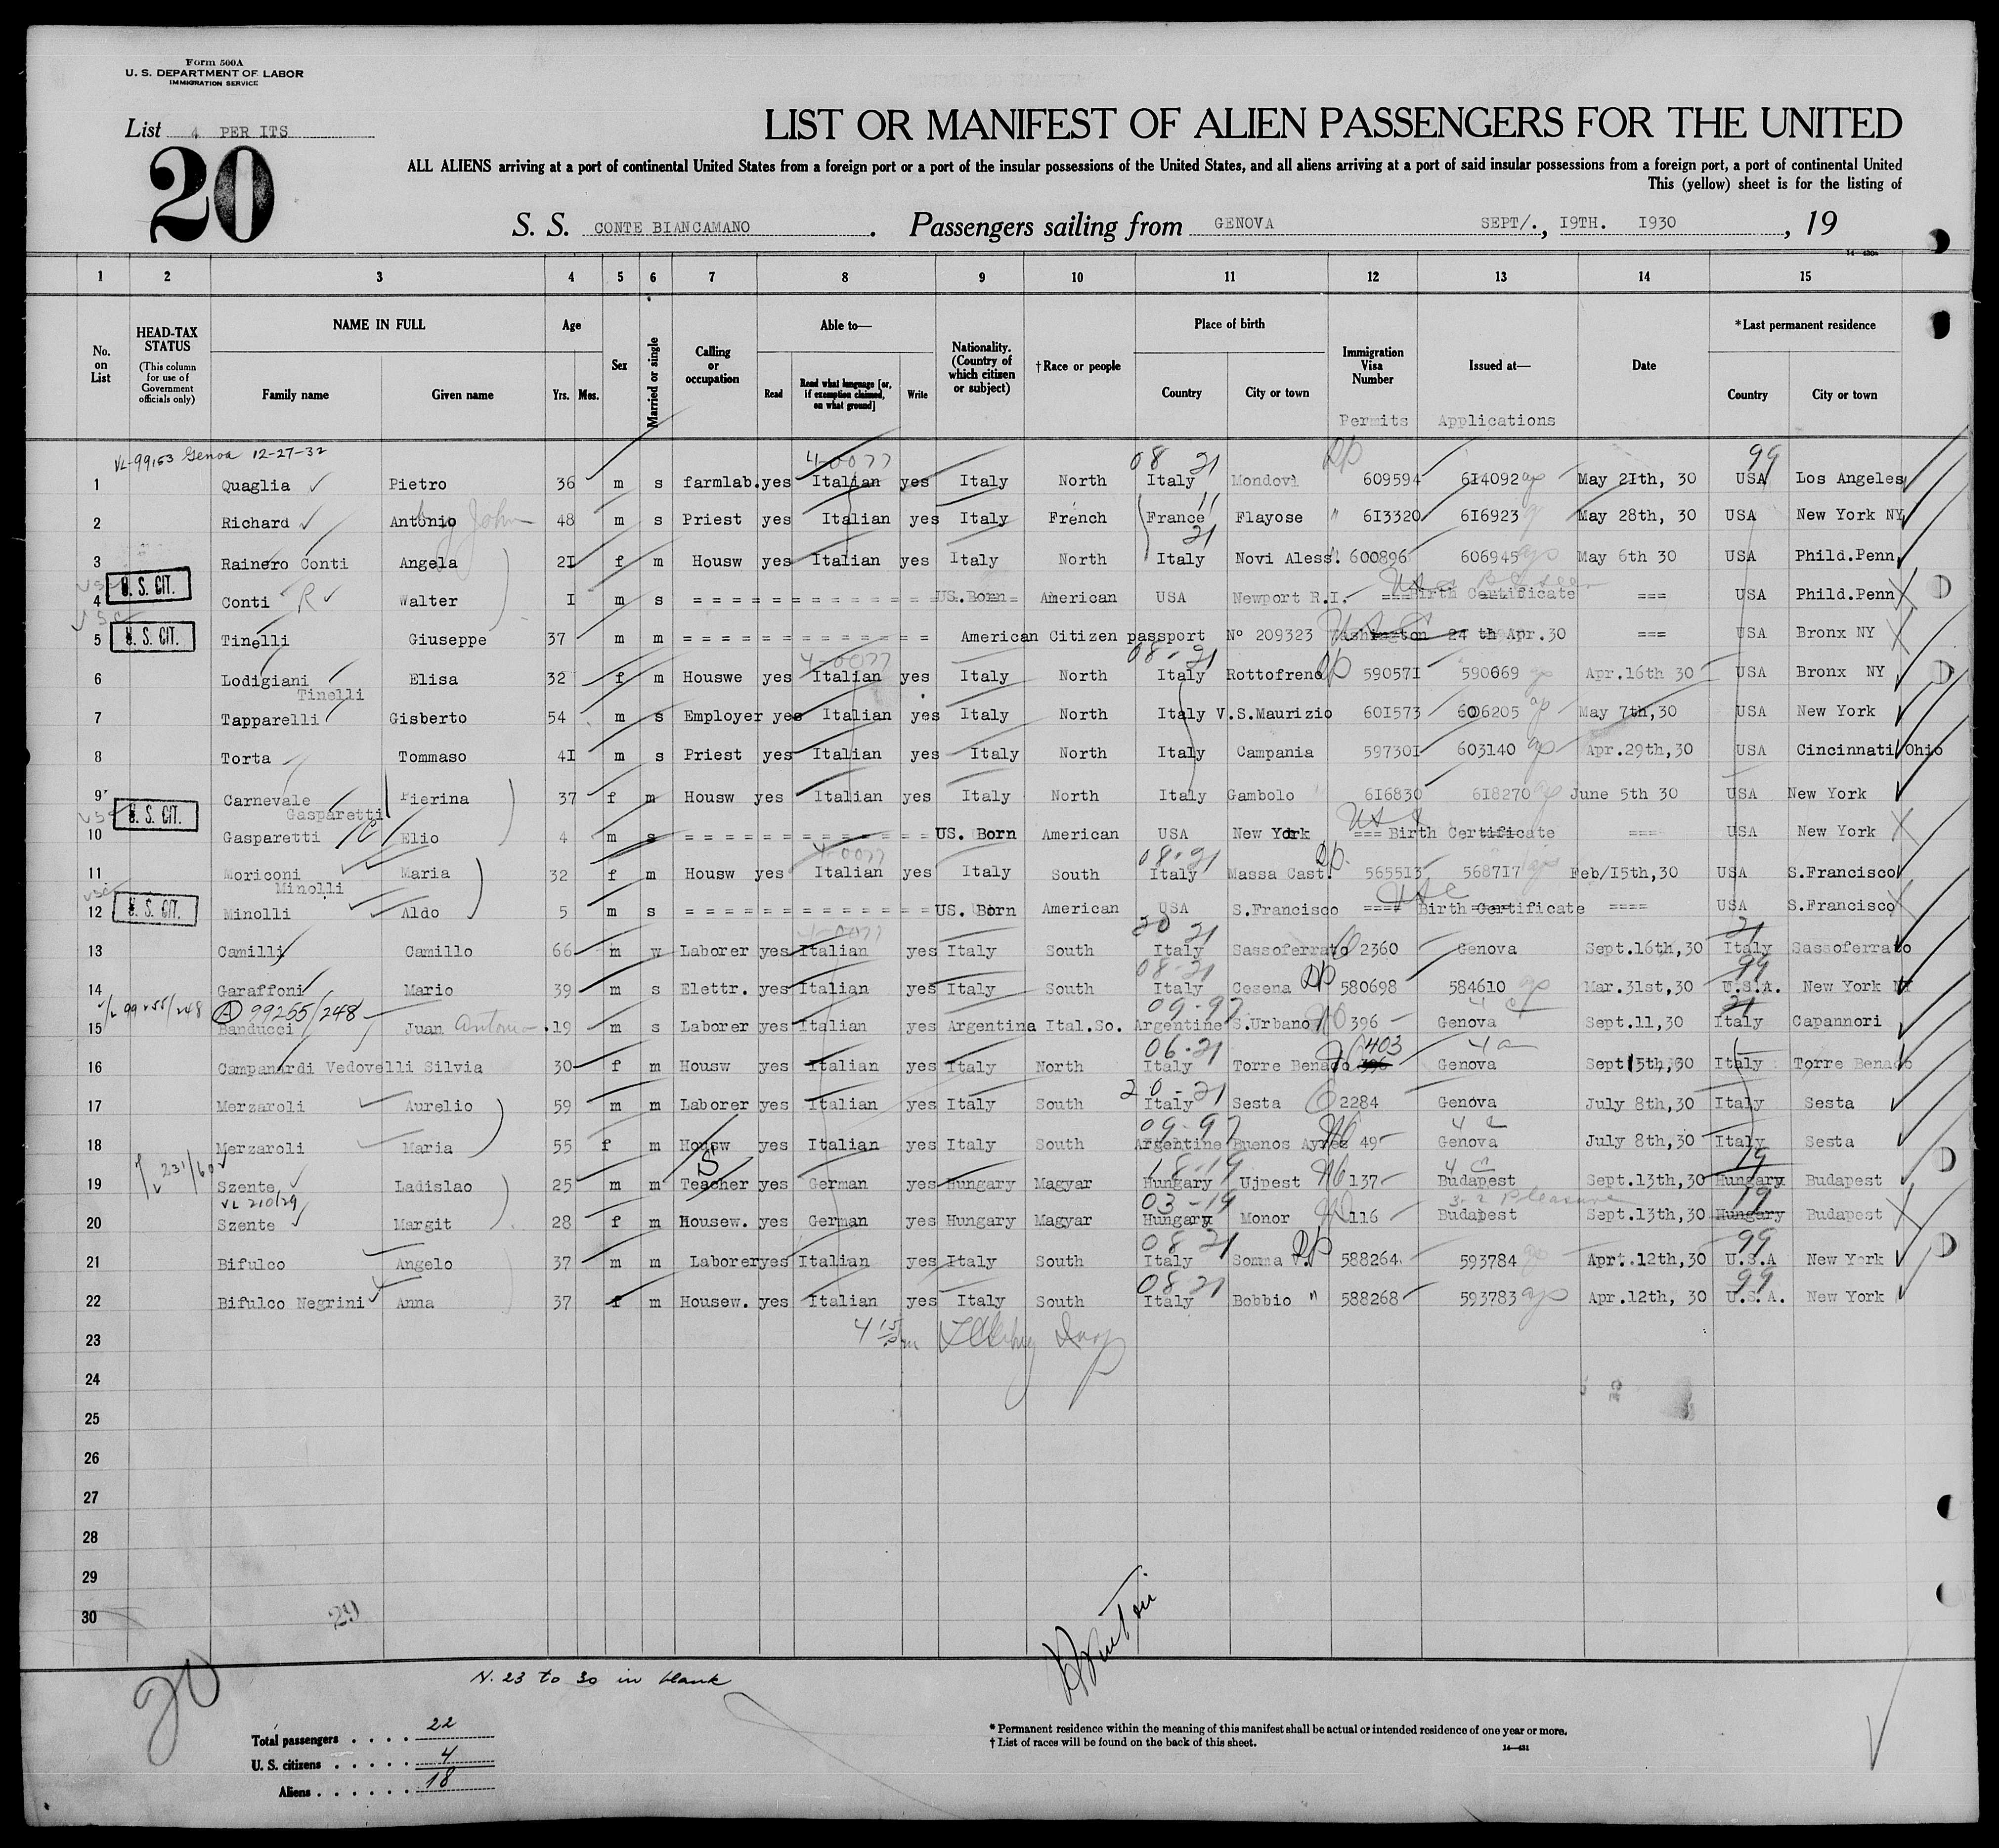 Form 500A
U. S. DEPARTMENT OF LABOR
IMMIGRATION SERVICE
List 4 PER ITS
20
LIST OR MANIFEST OF ALIEN PASSENGERS FOR THE UNITED
ALL ALIENS arriving at a port of continental United States from a foreign port or a port of the insular possessions of the United States, and all aliens arriving at a port of said insular possessions from a foreign port, a port of continental United
This (yellow) sheet is for the listing of
S. S. CONTE BIANCAMANO . Passengers sailing from GENOVA SEPT/., I9TH. I930 , 19
1 2 3 4 5 6 7 8 9 10 11 12 13 14 15
No. on List
HEAD-TAX STATUS
(This column for use of Government officials only)
NAME IN FULL
Family name Given name
Age
Yrs. Mos.
Sex
Married or single
Calling or occupation
Able to—
Read
Read what language [or, if exemption claimed, on what ground]
Write
Nationality. (Country of which citizen or subject)
†Race or people
Place of birth
Country City or town
Immigration Visa Number
Permits
Issued at—
Applications
Date
*Last permanent residence
Country City or town
VL-99153 Genoa 12-27-32
4-0077 08 21 99
1 Quaglia Pietro 36 m s farmlab. yes Italian yes Italy North Italy Mondovì 609594 614092 May 2Ith, 30 USA Los Angeles
2 Richard Antonio John 48 m s Priest yes Italian yes Italy French France Flayose " 6I3320 6I6923 May 28th, 30 USA New York NY
21
3 Rainero Conti Angela 2I f m Housw yes Italian yes Italy North Italy Novi Aless. 600896 606945 May 6th 30 USA Phild.Penn
U. S. CIT.
4 Conti Walter I m s = = = = = = = = = = = = US.Born American USA Newport R.I. === Birth Certificate === USA Phild.Penn
U. S. CIT.
5 Tinelli Giuseppe 37 m m = = = = = = = = = = = = American Citizen passport Nº 209323 Washington 24 th Apr.30 === USA Bronx NY
4-0077 08-21
6 Lodigiani Elisa 32 f m Houswe yes Italian yes Italy North Italy Rottofreno 59057I 590669 Apr.16th 30 USA Bronx NY
Tinelli
7 Tapparelli Gisberto 54 m s Employer yes Italian yes Italy North Italy V.S.Maurizio 60I573 606205 May 7th,30 USA New York
8 Torta Tommaso 4I m s Priest yes Italian yes Italy North Italy Campania 59730I 603140 Apr.29th,30 USA Cincinnati Ohio
9 Carnevale Pierina 37 f m Housw yes Italian yes Italy North Italy Gambolo 616830 618270 June 5th 30 USA New York
Gasparetti
U. S. CIT.
10 Gasparetti Elio 4 m s = = = = = = = = = = = = US. Born American USA New York === Birth Certificate === USA New York
4-0077 08-21
11 Moriconi Maria 32 f m Housw yes Italian yes Italy South Italy Massa Cast. 565513 568717 Feb/I5th,30 USA S.Francisco
Minolli
U. S. CIT.
12 Minolli Aldo 5 m s = = = = = = = = = = = = US. Born American USA S.Francisco ==== Birth Certificate ==== USA S.Francisco
4-0077 20 21 21
13 Camilli Camillo 66 m w Laborer yes Italian yes Italy South Italy Sassoferrato 2360 Genova Sept.16th,30 Italy Sassoferrato
08-21 99
14 Garaffoni Mario 39 m s Elettr. yes Italian yes Italy South Italy Cesena 580698 584610 Mar.31st,30 U.S.A. New York NY
A 99255/248 09-97 21
15 Banducci Juan 19 m s Laborer yes Italian yes Argentina Ital.So. Argentine S.Urbano 396 Genova Sept.11,30 Italy Capannori
06-21 403
16 Campanardi Vedovelli Silvia 30 f m Housw yes Italian yes Italy North Italy Torre Benaco 396 Genova Sept 15th,30 Italy Torre Benaco
20-21
17 Merzaroli Aurelio 59 m m Laborer yes Italian yes Italy South Italy Sesta 2284 Genova July 8th,30 Italy Sesta
09-97
18 Merzaroli Maria 55 f m Housw yes Italian yes Italy South Argentine Buenos Ayres 49 Genova July 8th,30 Italy Sesta
18-19 19
19 Szente Ladislao 25 m m Teacher yes German yes Hungary Magyar Hungary Ujpest 137 Budapest Sept.13th,30 Hungary Budapest
VL 210/29 03-19 3-2 Pleasure 19
20 Szente Margit 28 f m Housew. yes German yes Hungary Magyar Hungary Monor 116 Budapest Sept.13th,30 Hungary Budapest
08 21 99
21 Bifulco Angelo 37 m m Laborer yes Italian yes Italy South Italy Somma V. 588264 593784 Apr.12th,30 U.S.A New York
08 21 99
22 Bifulco Negrini Anna 37 f m Housew. yes Italian yes Italy South Italy Bobbio " 588268 593783 Apr.12th, 30 U.S.A. New York
23
24
25
26
27
28
29
30
29
20
N. 23 to 30 in blank
Total passengers . . . . 22
U. S. citizens . . . . . 4
Aliens . . . . . . 18
* Permanent residence within the meaning of this manifest shall be actual or intended residence of one year or more.
† List of races will be found on the back of this sheet.
14—431